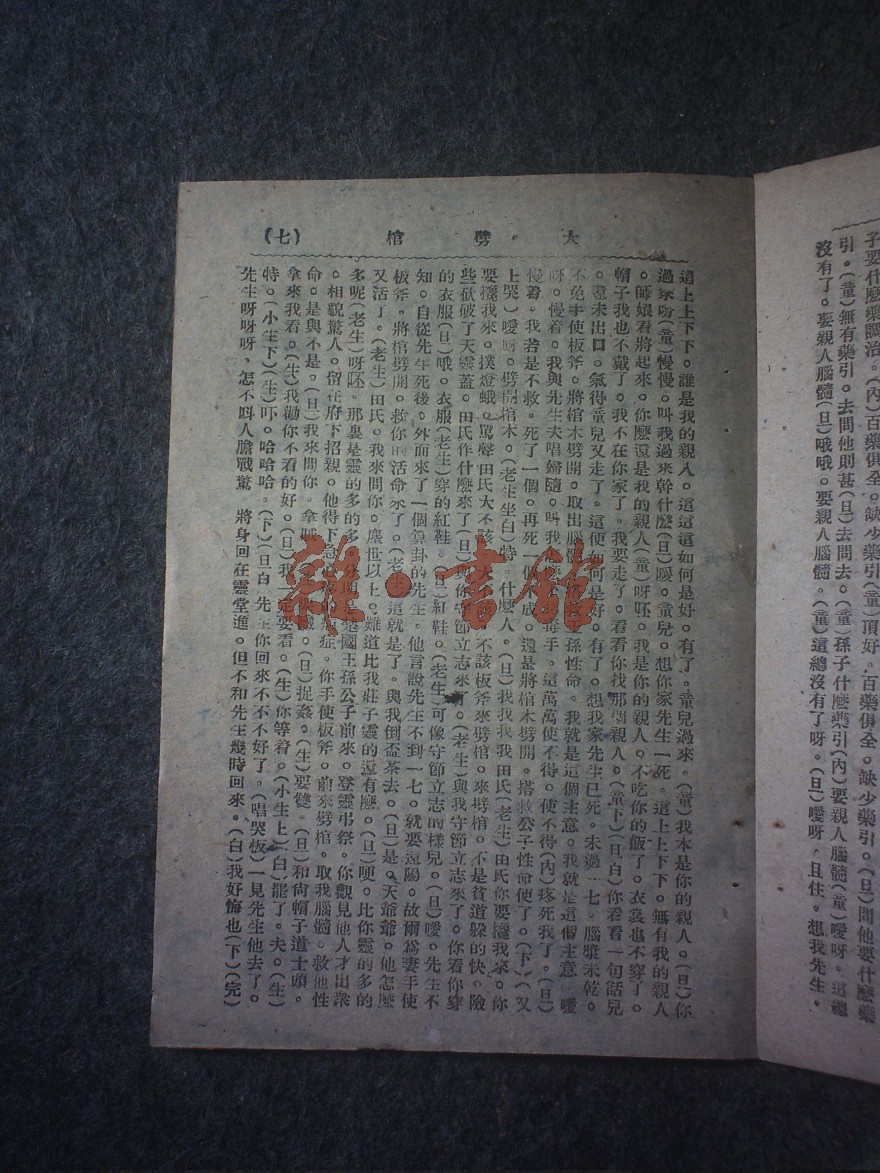 子要什麼藥調治。(內)百藥俱全。缺少藥引(童)頂好。百藥俱全。缺少藥引。(旦)問他要什麼藥
引。(童)無有藥引。去問他則甚(旦)去問去。(童)孫子什麼藥引(內)要親人腦髓(童)噯呀。這總
沒有了。要親人腦髓(旦)哦哦。要親人腦髓。(童)這總沒有了呀。(旦)噯呀。且住。想我先生。
大劈棺
(七)
這上上下下。誰是我的親人。這這這如何是好。有了。童兒過來。(童)我本是你的親人。(旦)你
過來吩(童)慢慢。叫我過來幹什麼(旦)噯。童兒。想你家先生一死。這上上下下。無有我的親人
。師娘看將起來。你麼還是我的親人(童)呀呸。我是你的親人。不吃你的飯了。衣裳也不穿了。
帽子我也不戴了。我不在你家了。我要走了。看看你找那個親人。(童下)(旦白)你看看一句話兒
。還未出口。氣得童兒又走了。這便如何是好。有了。想我家先生已死。未過一七。腦漿未乾。
不免手使板斧。將棺木劈開。取出腦髓。孫性命。我就是這個主意。我就是這個主意。噯
呀。慢着。我與先生夫唱婦隨。叫我毒手。這萬萬使不得。使不得(內)疼死我了。(旦)
慢着。我若是不救。死了一個。再死一個成。還是將棺木劈開。搭救公子性命便了。(下)(又
上哭)噯呀。劈開棺木。(老生坐白)特。什麼人。(旦)我我我我田氏(老生)田氏你要攔我來。你
要攔我來。撲燈蛾。罵聲田氏大不該不該板斧來劈棺。來劈棺。不是貧道躲的快。險
些砍破了天靈蓋。田氏作什麼來了(旦)與你守節立志來了。(老生)與我守節立志來了。你看你穿
的衣服(旦)哦。衣服(老生)穿的紅鞋。(旦)紅鞋。(老生)可像守節立志的樣兒。(旦)噯。先生不
知。自從先生死後。外面來了一個算卦的先生。他言說先生不到一七。就要還陽。故爾為妻手使
板斧。將棺劈開。救你的活命來了。(老生)這就是了。與我倒盃茶去。(旦)是。天爺爺。他怎麼
又活了。(老生)田氏。我來問你。塵世以上。難道比我莊子靈的還有麼。(旦)哽。比你靈的多的
多呢(老生)呀呸。那裏是靈的多的多國王孫公子前來。登靈弔祭。你觀見他人才出衆
。相貌驚人。留在府下招親。他得下急症。你手使板斧。前來劈棺。取我腦髓。救他性
命。是與不是。(旦)我來問你。拿賊(旦)捉姦。(生)要雙。(旦)和尚帽子道士頭。
拿來我看。(生)我勸你不看的好。(旦)我一定要看。(生)你等着。(小生上)(白)罷了。夫。(生)
特。(小生下)(生)吓。哈哈哈。(下)(旦白)先生你回來不不不好了。(唱哭板)一見先生他去了。
先生呀呀呀。怎不叫人膽戰驚 將身回在靈堂進。但不和先生幾時回來。(白)我好悔也(下)(完)
雜·書館